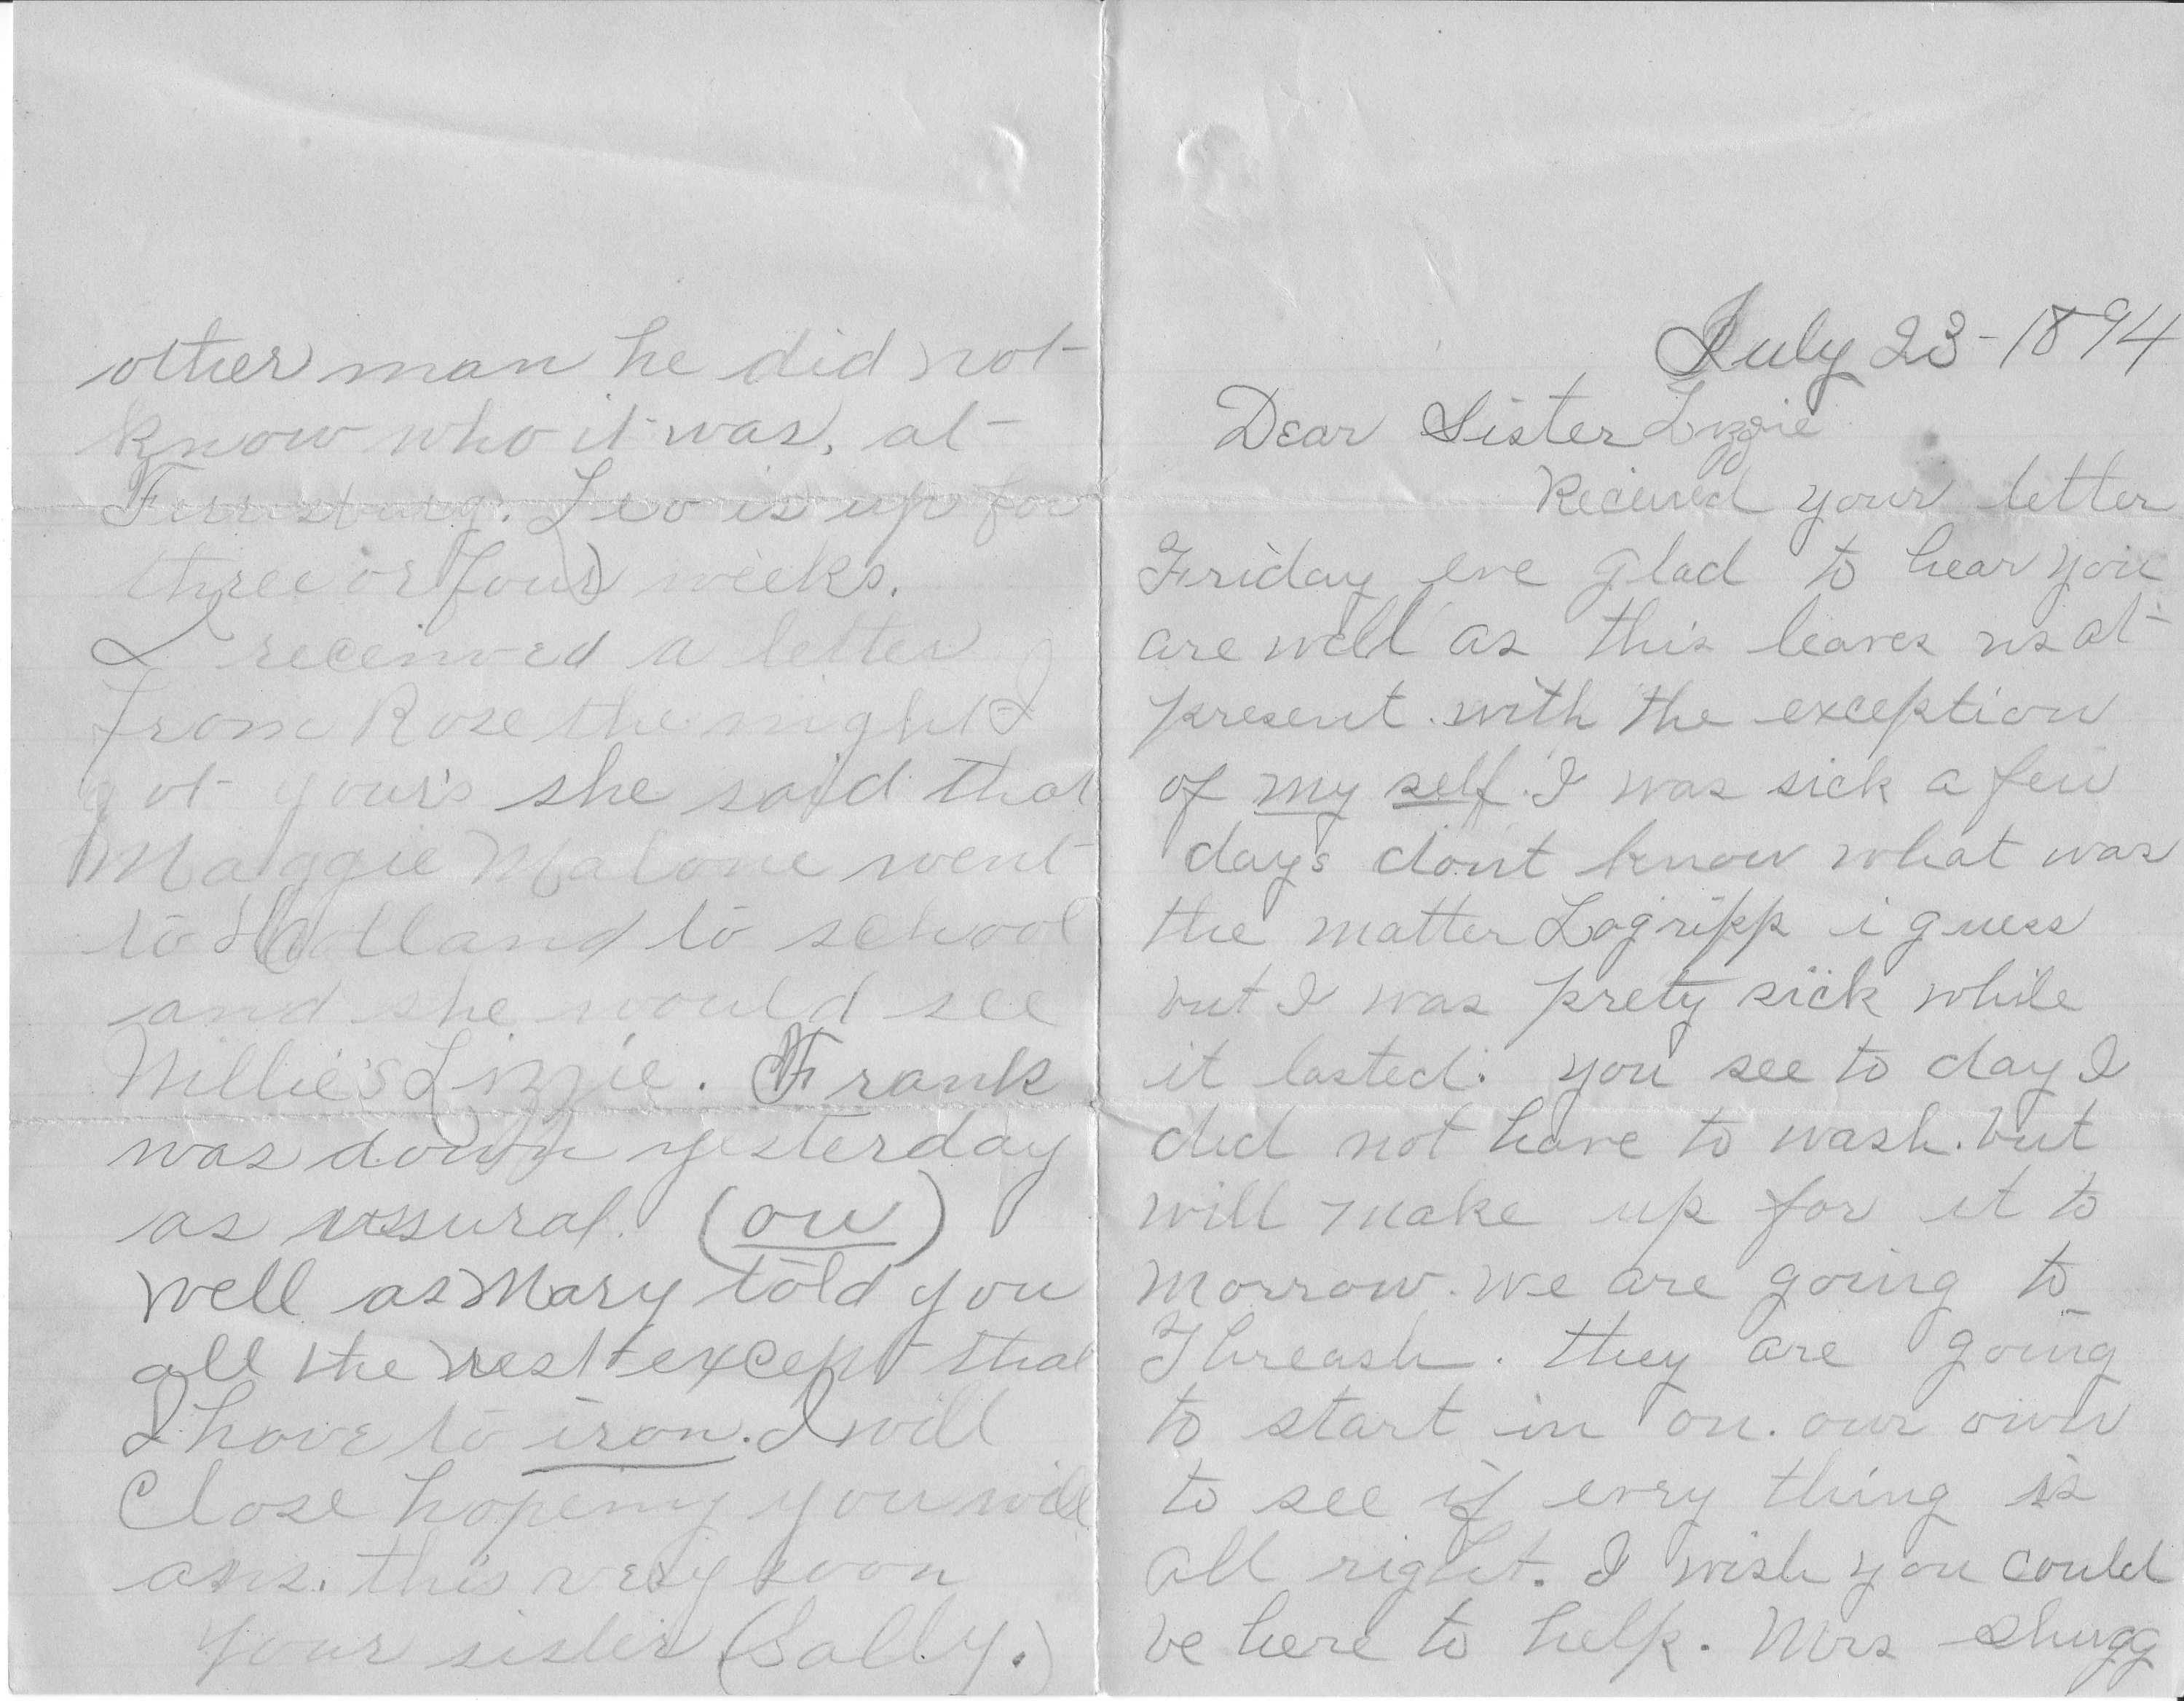 July 23-1894
Dear Sister Lizzie
Recieved your letter
Friday eve glad to hear you
are well as this leaves us at
present. with the exception
of my self. I was sick a few
day's don't know what was
the matter Lagripp i guess
but I was prety sick while
it lasted. you see to day I
did not have to wash. but
will make up for it to
morrow. we are going to
Threash. they are going
to start in on. our own
to see if evry thing is
all right. I wish you could
be here to help. Mrs Shugg
other man he did not
know who it was, at
Ferrysburg. Leo is up for
three or four weeks.
I received a letter
from Rose the night I
got your's she said that
Maggie Malone went
to Holland to school
and she would see
Millie's Lizzie. Frank
was down yesterday
as ussural. (ow)
well as Mary told you
all the rest except that
I have to iron. I will
Close hopeing you will
ans. this very soon
your sister (Sally.)